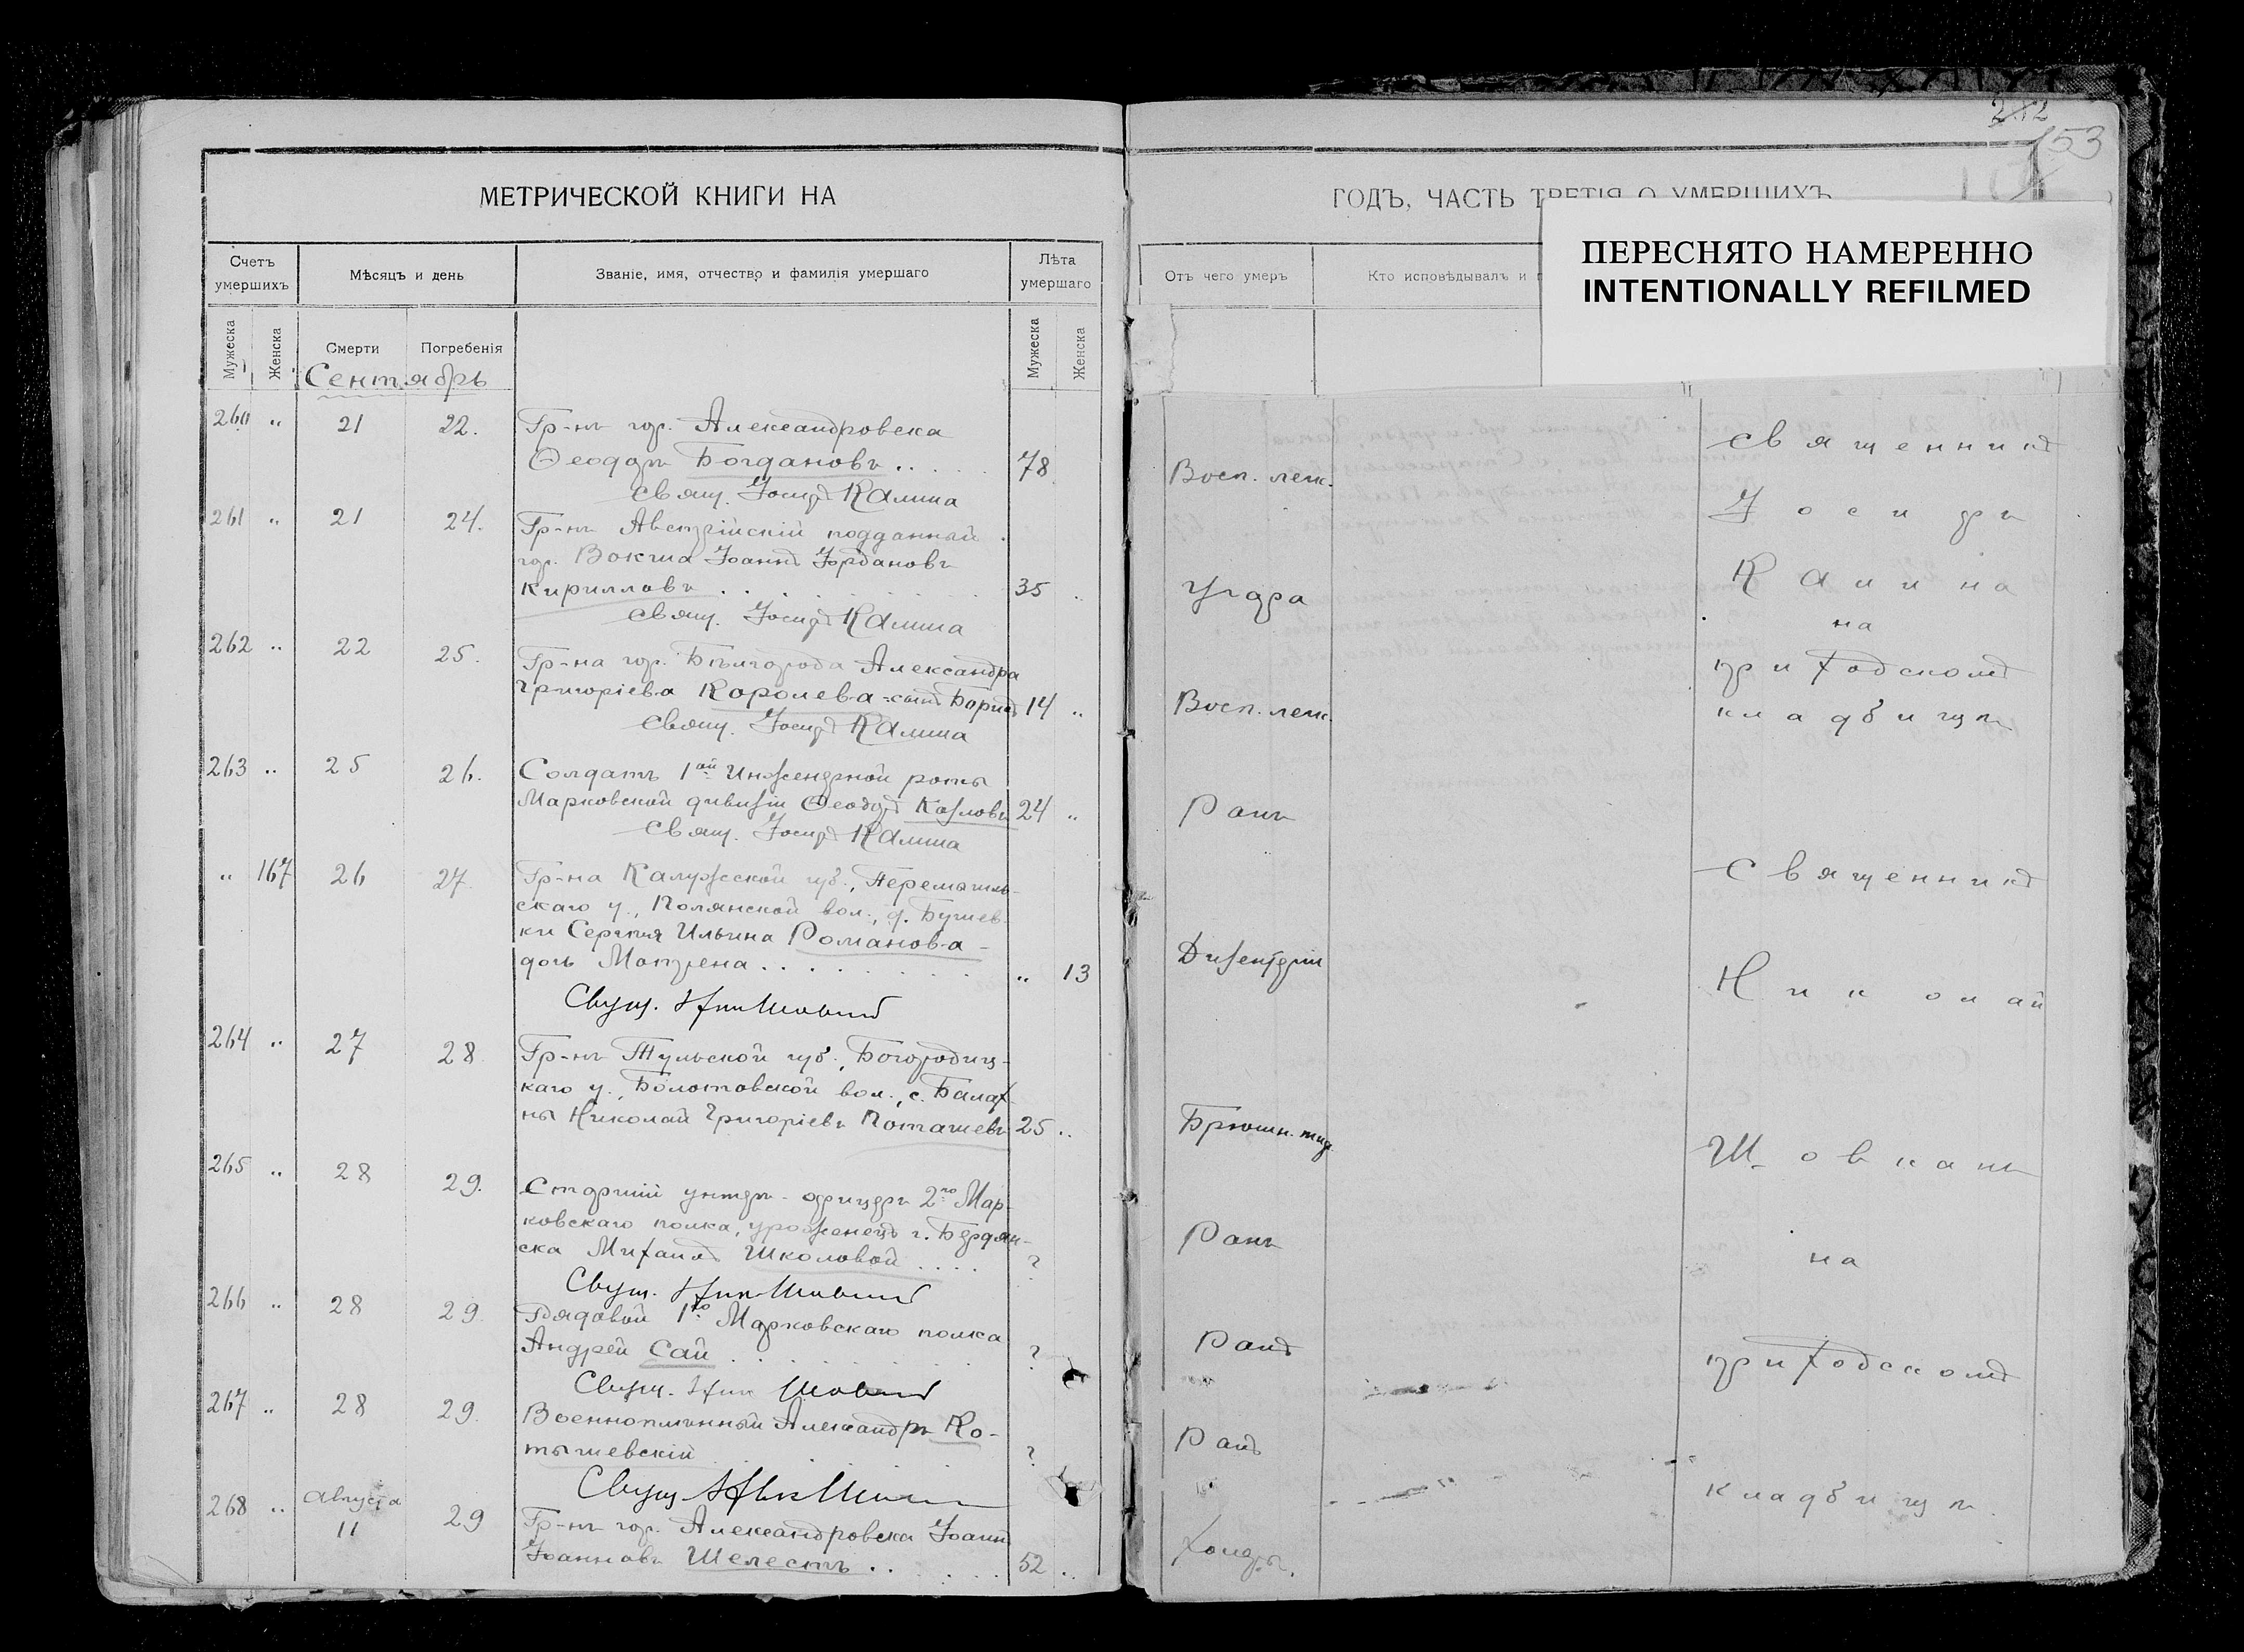 212
153
МЕТРИЧЕСКОЙ КНИГИ НА
ГОДЪ, ЧАСТЬ ТРЕТІЯ О УМЕРШИХЪ
ПЕРЕСНЯТО НАМЕРЕННО
INTENTIONALLY REFILMED
Счетъ умершихъ
Мѣсяцъ и день
Званіе, имя, отчество и фамилія умершаго
Лѣта умершаго
Отъ чего умеръ
Кто исповѣдывалъ и
Мужеска
Женска
Смерти
Погребенія
Мужеска
Женска
Сентябрь
260 " 21 22. Гр-нъ гор. Александровска
Ѳеодоръ Богдановъ . . 78
Свящ. Іосифъ Калина
261 " 21 24. Гр-нъ Австрійскій подданный
гор. Вокша Іоаннъ Іордановъ
Кирилловъ . . 35
Свящ. Іосифъ Калина
262 " 22 25. Гр-на гор. Бѣлгорода Александра
Григоріева Королева - сынъ Борисъ 14 "
Свящ. Іосифъ Калина
263 " 25 26. Солдатъ 1ой Инженерной роты
Марковской дивизіи Ѳеодоръ Козловъ 24 "
Свящ. Іосифъ Калина
" 167 26 27. Гр-на Калужской губ., Перемышль-
скаго у., Полянской вол., д. Бушев-
ки Сергія Ильина Романова -
дочь Матрена . . . " 13
Свящ. Ник Шовкан
264 " 27 28 Гр-нъ Тульской губ., Богородиц-
каго у., Болотовской вол., с. Балах
ны Николай Григоріевъ Поташевъ 25 "
265 " 28 29. Старшій унтеръ-офицеръ 2го Мар-
ковскаго полка, уроженецъ г. Бердян-
ска Михаилъ Школовой . . . . ?
Свящ. Ник Шовкан
266 " 28 29 Рядовой 1го Марковскаго полка
Андрей Сай . . . ?
Свящ. Ник Шовкан
267 " 28 29. Военноплѣнный Александръ Ко-
тышевскій . . . ?
Свящ. Ник
268 " Августа 11 29 Гр-нъ гор. Александровска Іоаннъ
Іоанновъ Шелестъ . . . 52 "
Восп. легк.
Угара
Восп. легк.
Ранъ
Дизентеріи
Брюшн. тиф
Ранъ
Ранъ
Ранъ
Холеры.
Священникъ
Іосифъ
Калина
на
приходскомъ
кладбищѣ
Священникъ
Николай
Шовканъ
на
приходскомъ
кладбищѣ